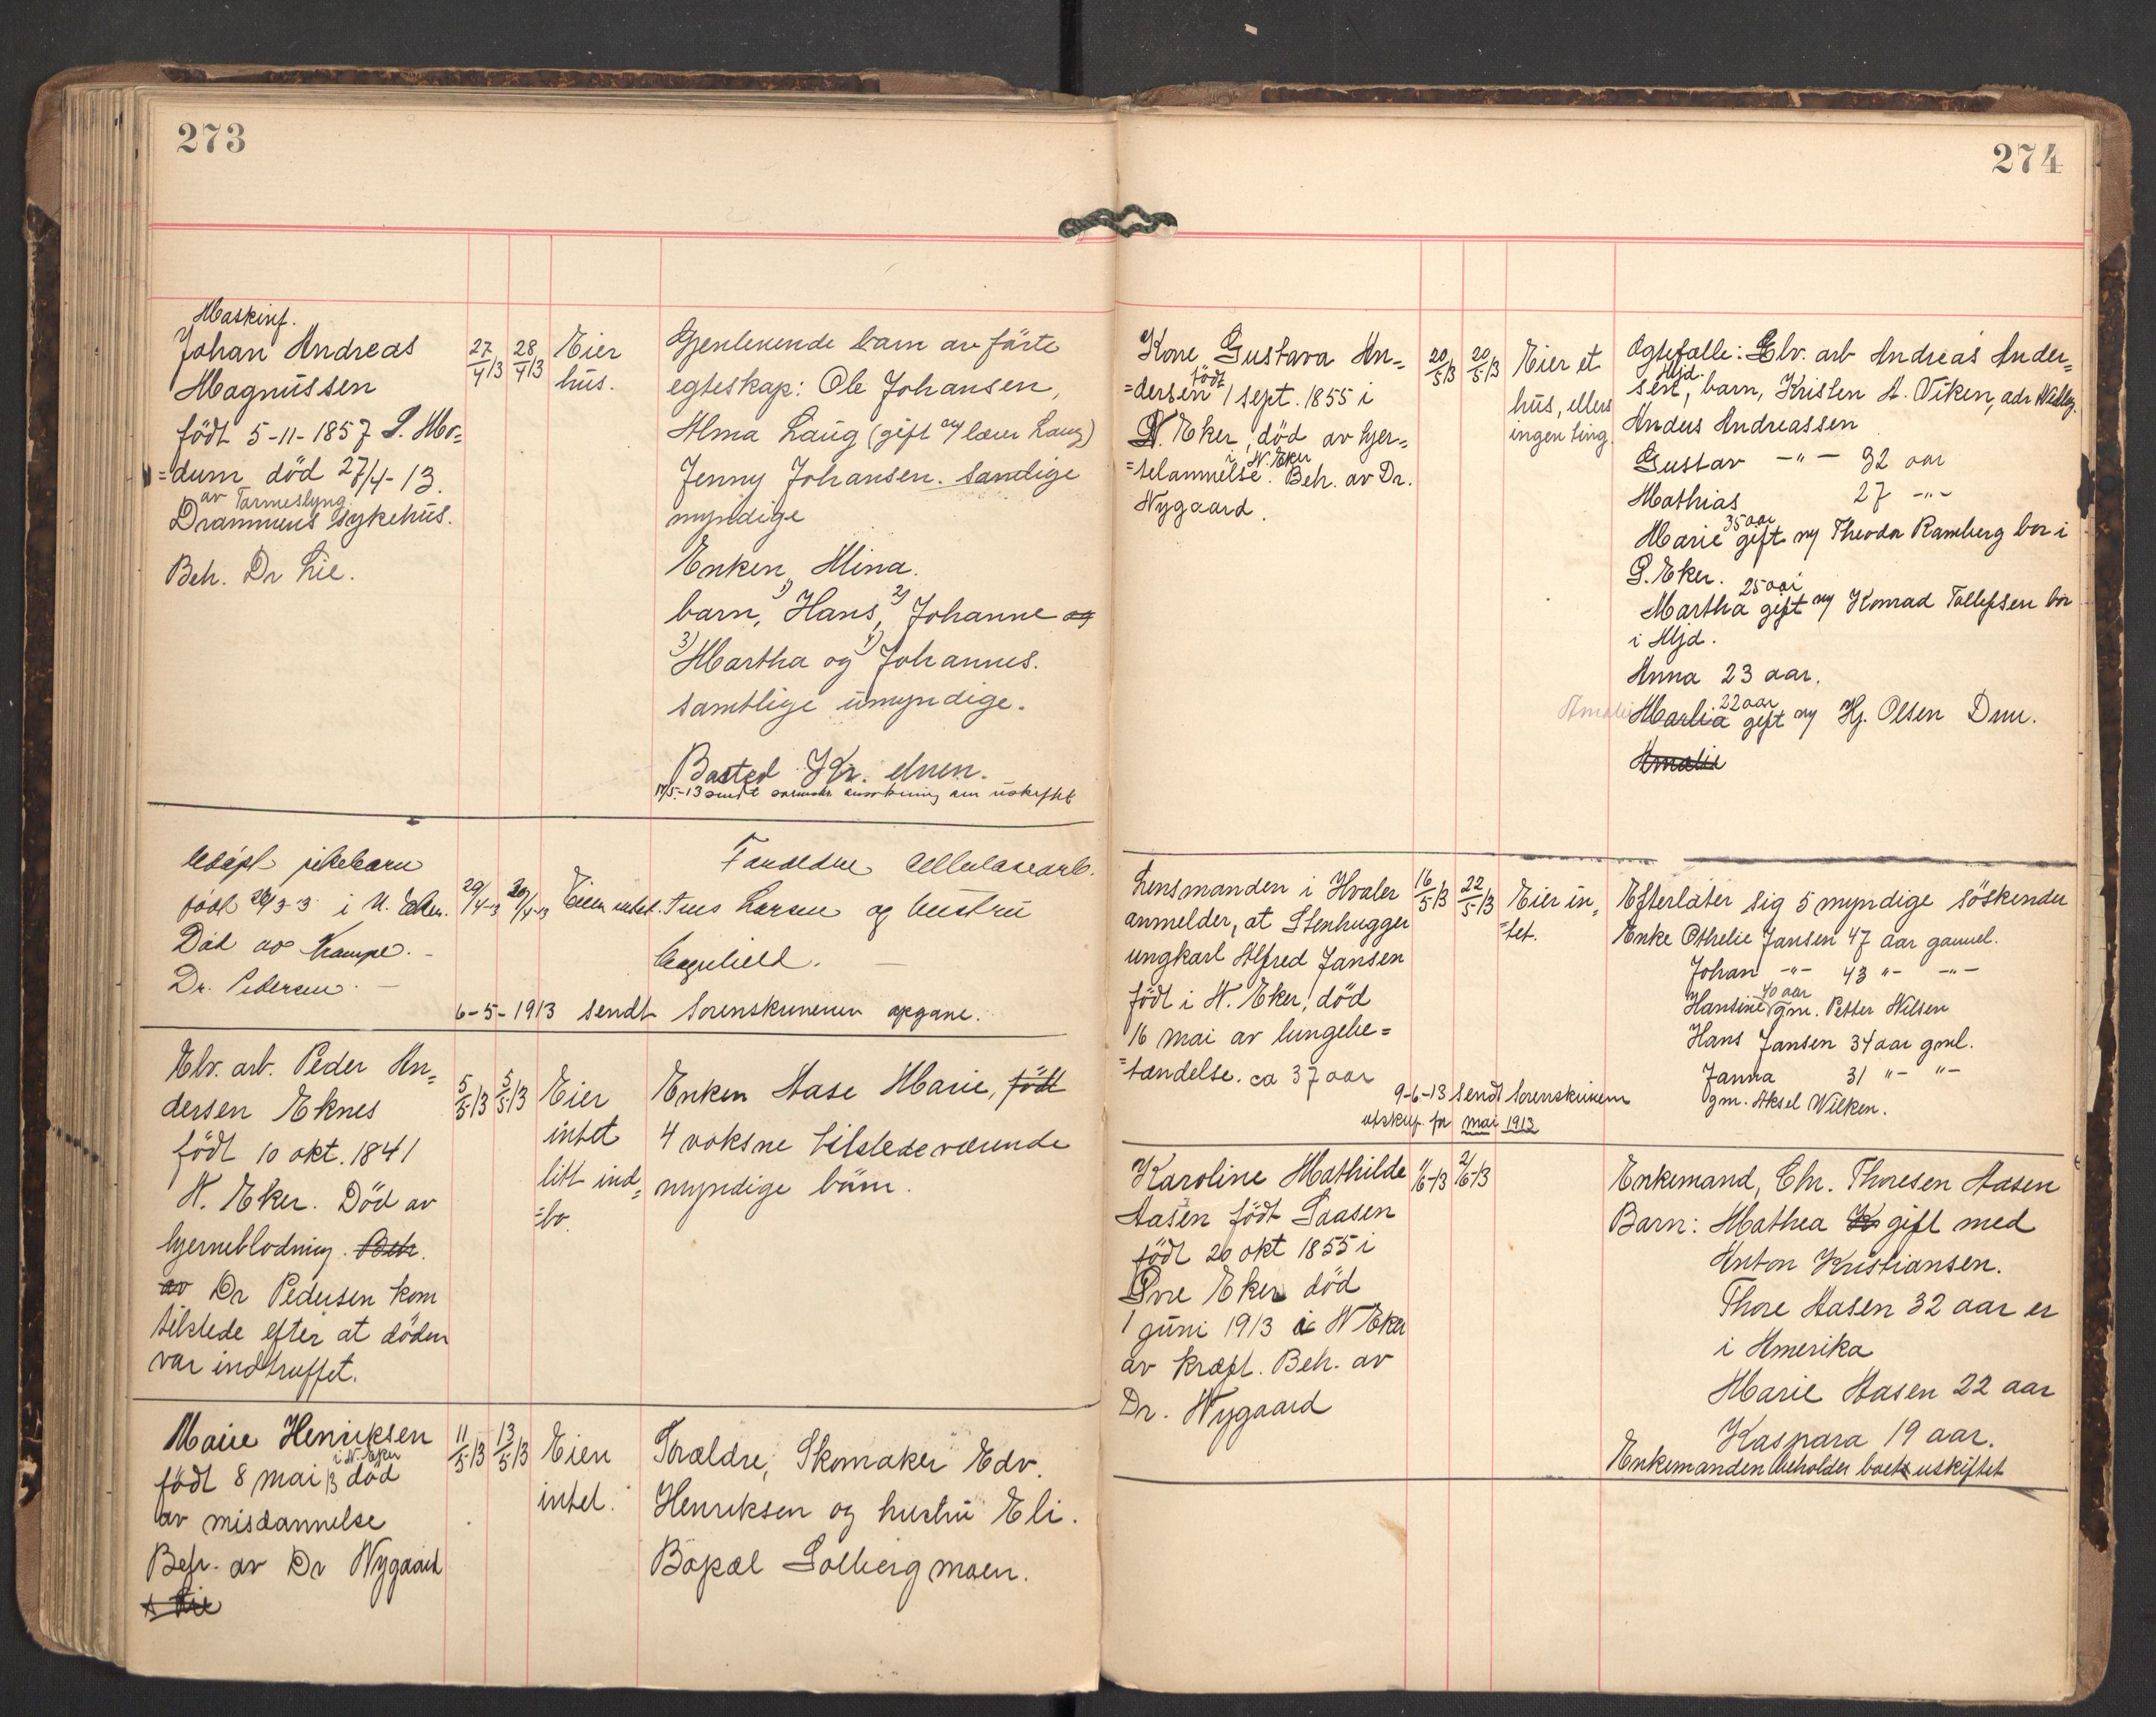 273
Maskinf.
Johan Andreas
Magnussen
født 5-11-1857 S. Mo=
=dum død 27/4-13.
av Tarmeslyng
Drammens sykehus.
Beh. Dr Lie.
27/4 13
28/4 13
Eier
hus.
Gjenlevende barn av förte
egteskap: Ole Johansen,
Alma Laug (gift m/ lærer Laug)
Jenny Johansen. Samtlige
myndige
Enken Mina.
barn, 1) Hans, 2) Johanne og
3) Martha og 4) Johannes.
samtlige umyndige.
Bosted Kr. elven.
17/5-13 sendt om uskiftet
Udöpt pikebarn
född 3-3 i N. Eker.
Död av Krampe.-
Dr. Pedersen.-
29/4-13
30/4-13
Eier intet.
Forældre Cellulosearb.
Larsen og hustru
6-5-1913 sendt Sorenskriveren opgave.
Elv. arb. Peder An=
dersen Eknes
född 10 okt. 1841
N. Eker. Död av
hjerneblodning. Beh.
av Dr Pedersen kom
tilstede efter at döden
var indtruffet.
5/5 13
5/5 13
Eier
intet
litt ind=
=bo.
Enken Aase Marie, födt
4 voksne tilstedeværende
myndige börn.
Marie Henriksen
i N. Eker
född 8 mai 13 död
av misdannelse
Beh. av Dr Nygaard
11/5 13
13/5 13
Eien
intet.
Forældre, Skomaker Edv.
Henriksen og hustru Eli.
Bopæl Solberg moen.
274
Kone Gustava An=
=dersen födt 1 sept. 1855 i
N. Eker, död av hjer=
i N. Eker
=telammelse. Beh. av Dr.
Nygaard.
20/5 13
20/5 13
Eier et
hus, ellers
ingen ting.
Ægtefælle: Elv. arb Andreas Ander=
Mjd.
sen, barn, Kristen A. Viken, adr
Anders Andreassen
Gustav -"- 32 aar
Mathias 27 -"-
35 aar
Marie gift m/ Theodor Ramberg bor i
S. Eker.
25 aar
Martha gift m/ Konrad Tollefsen bor
i Mjd.
Anna 23 aar.
22 aar
Amalie Marlia gift m/ Hj. Olsen Dmn.
Amalie
Lensmanden i Hvaler
anmelder, at Stenhugger
ungkarl Alfred Jansen
födt i N. Eker, död
16 mai av lungebe=
=tændelse. ca 37 aar
16/5 13
22/5 13
Eier in=
=tet.
Efterlater sig 5 myndige söskender
Enke Othelie Jansen 47 aar gammel.
Johan -"- 43 "- -"-
40 aar
Hansine gm. Petter Nilsen
Hans Jansen 34 aar gml.
Janna 31 "- "-
gm. Aksel Wilken.
9-6-13 Sendt Sorenskriveren
utskrift for mai 1913
Karoline Mathilde
Aasen födt Saasen
födt 20 okt 1855 i
Övre Eker död
1 juni 1913 i N Eker
av kræft. Beh. av
Dr. Nygaard
1/6-13
2/6-13
Enkemand, Chr. Thoresen Aasen
Barn: Mathea gift med
Anton Kristiansen.
Thore Aasen 32 aar er
i Amerika
Marie Aasen 22 aar
Kaspara 19 aar.
Enkemanden beholder boet uskiftet